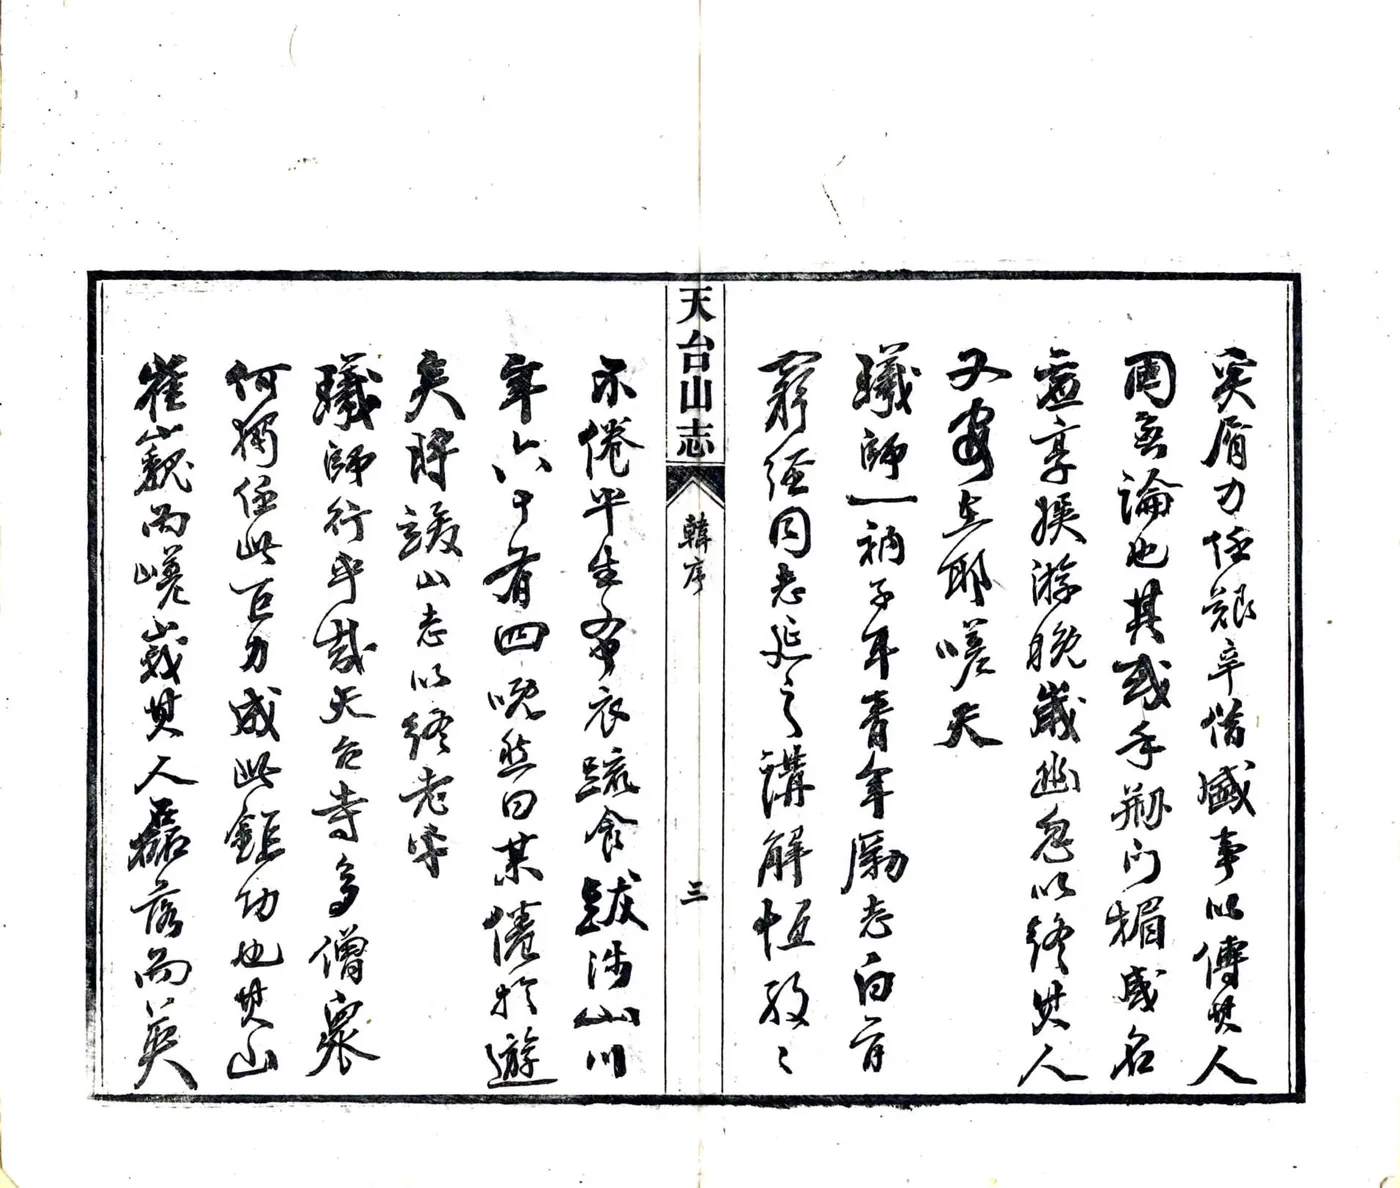 奚屑力任艱辛措盛事以傳其人
固無論也其或手門楣咸名
享娛游晚歲幽以終其人
又安在耶嗟夫
曦師一衲子耳青年勵志白首
窮經同志延之講解恆孜〻
天台山志
韓序
三
不倦半生布衣蔬食跋涉山川
年六十有四喟然曰某倦於遊
矣將山志以終老乎
曦師行乎哉天台寺多僧衆
何獨任此巨力成此鉅功也其山
崔巍而嵯峨其人磊落而英